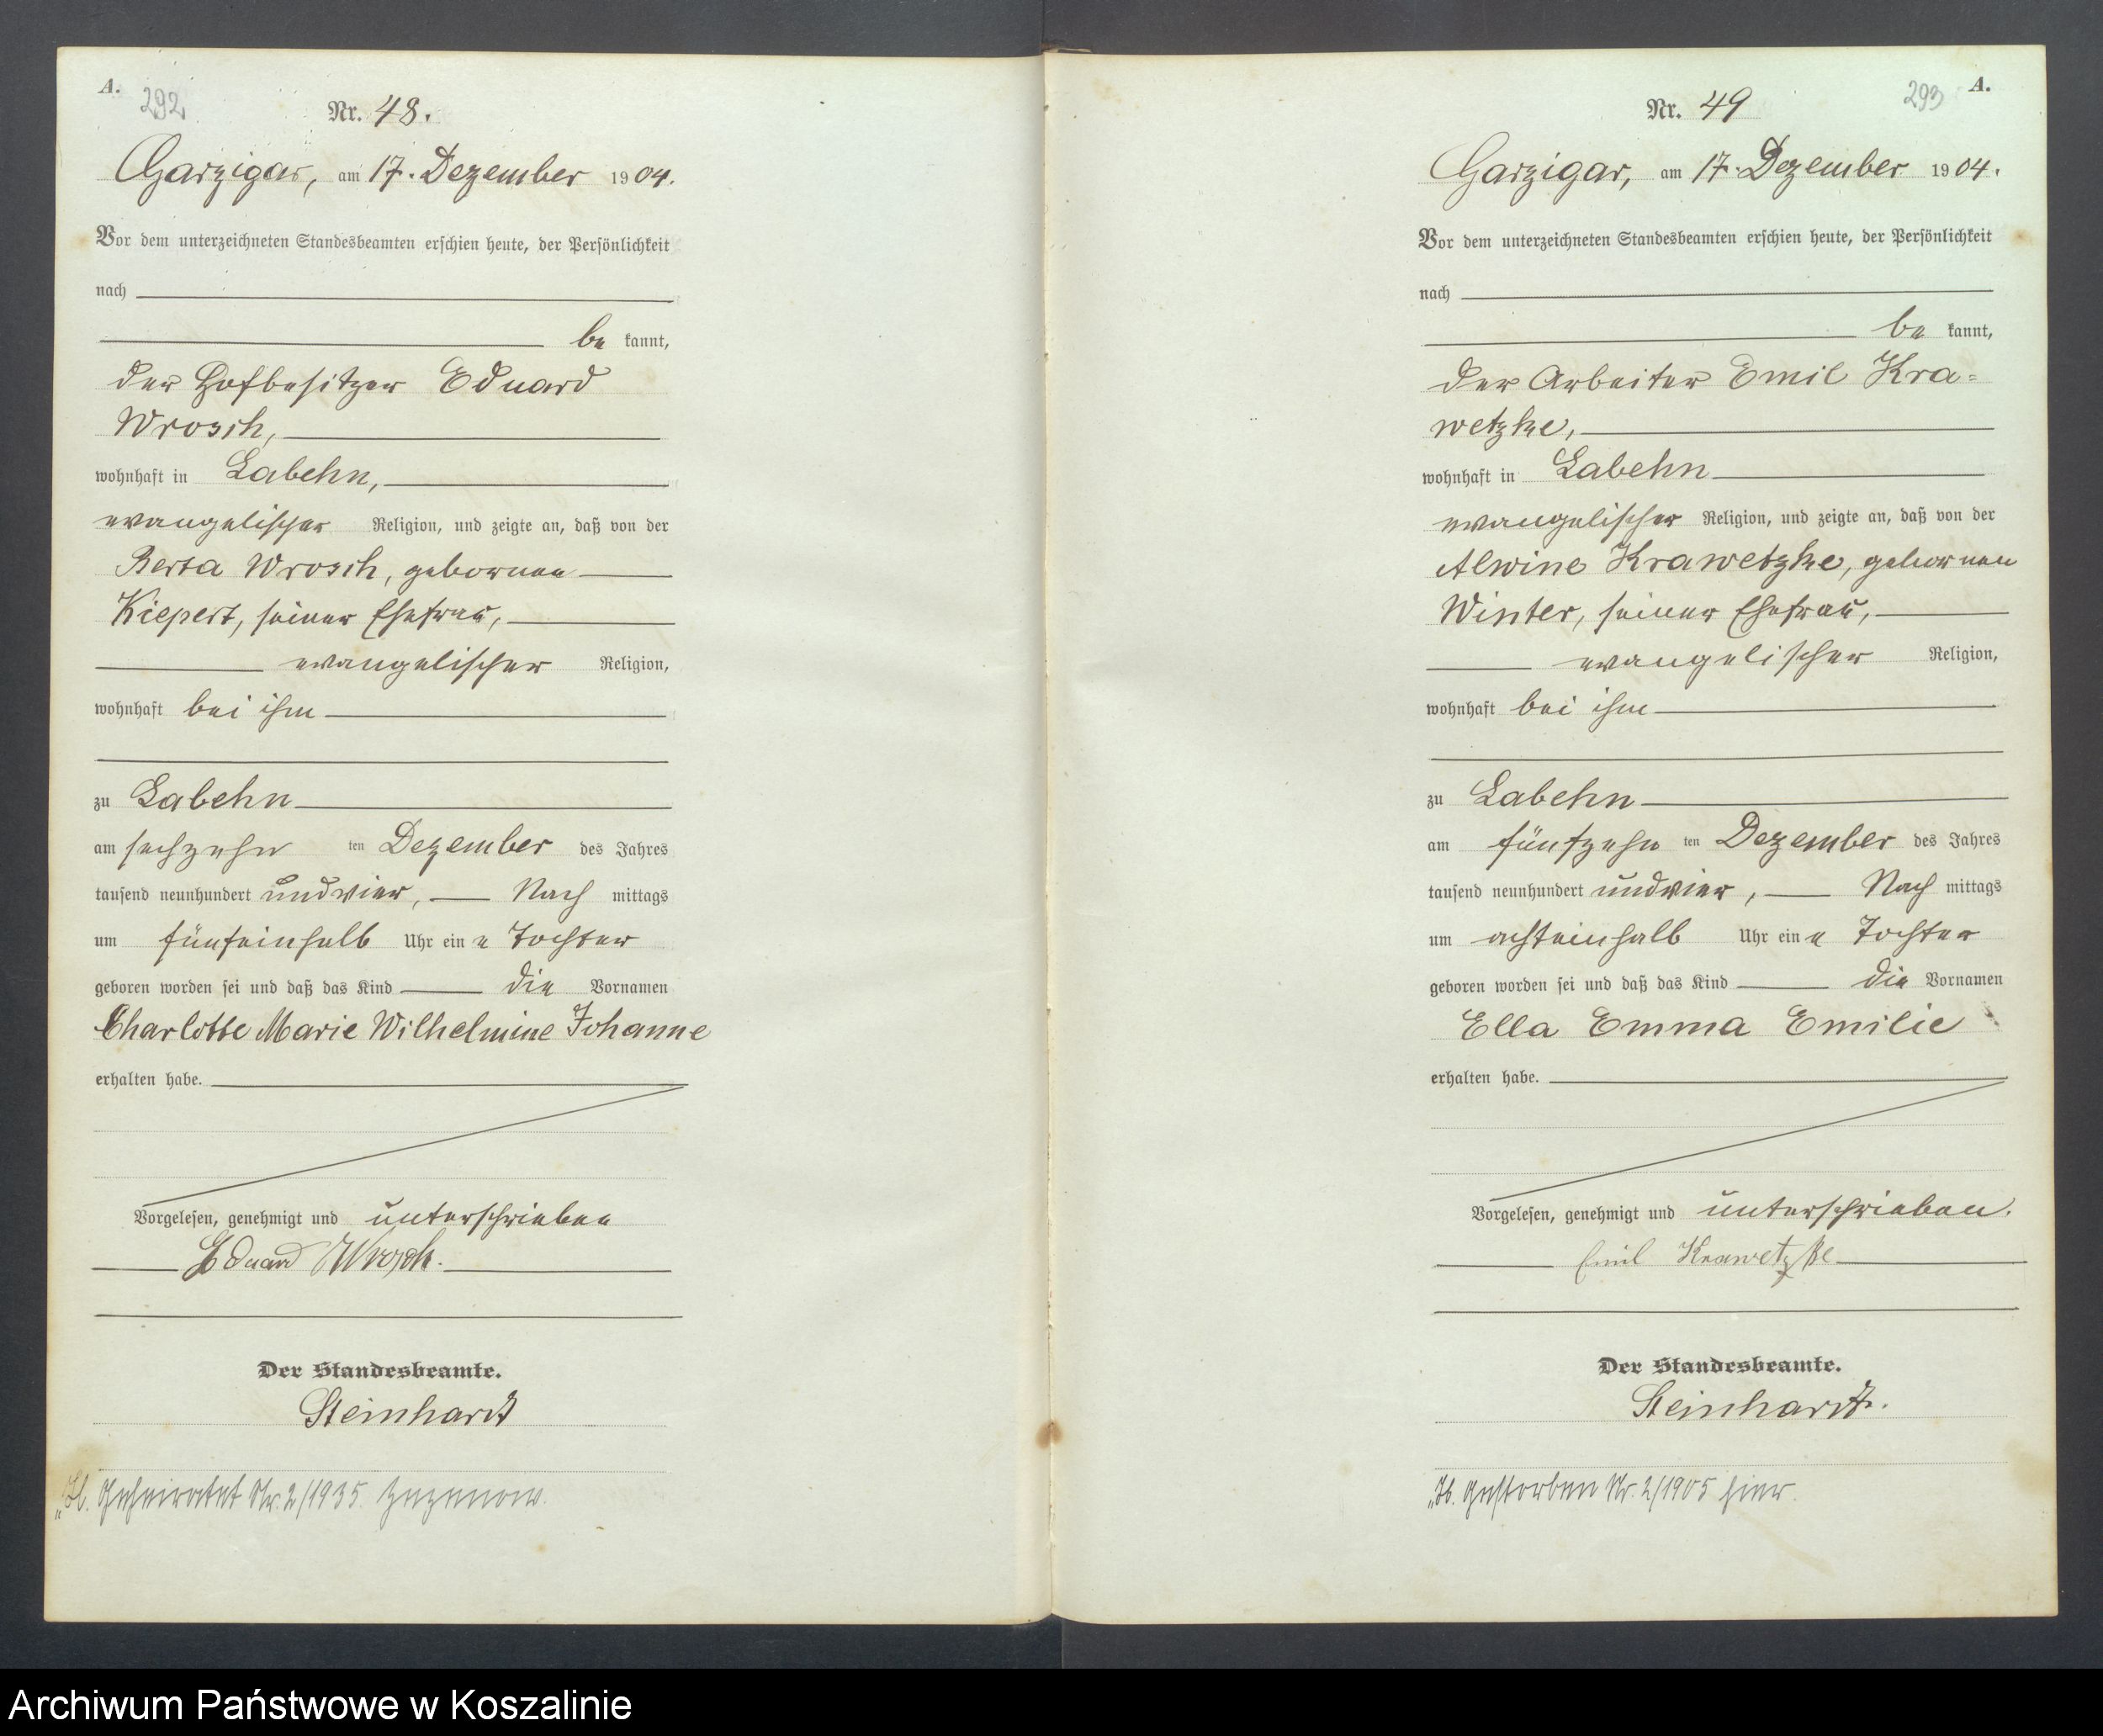 A.
292
Nr. 48.
Garzigar, am 17. Dezember 1904.
Vor dem unterzeichneten Standesbeamten erschien heute, der Persönlichkeit
nach
be kannt,
der Hofbesitzer Eduard
Wrosch,
wohnhaft in Labehn,
evangelischer Religion, und zeigte an, daß von der
Berta Wrosch, gebornen
Kiepert, seiner Ehefrau,
evangelischer Religion,
wohnhaft bei ihm
zu Labehn
am sechzehn ten Dezember des Jahres
tausend neunhundert undvier, Nach mittags
um fünfeinhalb Uhr ein e Tochter
geboren worden sei und daß das Kind die Vornamen
Charlotte Marie Wilhelmine Johanne
erhalten habe.
Vorgelesen, genehmigt und unterschrieben
Eduard Wrosch.
Der Standesbeamte.
Steinhardt
Geheiratet Nr. 2/1935. Zezenow.
293
A.
Nr. 49
Garzigar, am 17. Dezember 1904.
Vor dem unterzeichneten Standesbeamten erschien heute, der Persönlichkeit
nach
be kannt,
der Arbeiter Emil Kra=
wetzke,
wohnhaft in Labehn
evangelischer Religion, und zeigte an, daß von der
Alwine Krawetzke, gebornen
Winter, seiner Ehefrau,
evangelischer Religion,
wohnhaft bei ihm
zu Labehn
am fünfzehn ten Dezember des Jahres
tausend neunhundert undvier, Nach mittags
um achteinhalb Uhr ein e Tochter
geboren worden sei und daß das Kind die Vornamen
Ella Emma Emilie
erhalten habe.
Vorgelesen, genehmigt und unterschrieben.
Emil Krawetzke
Der Standesbeamte.
Steinhardt.
Gestorben Nr. 2/1905 hier.
Archiwum Państwowe w Koszalinie